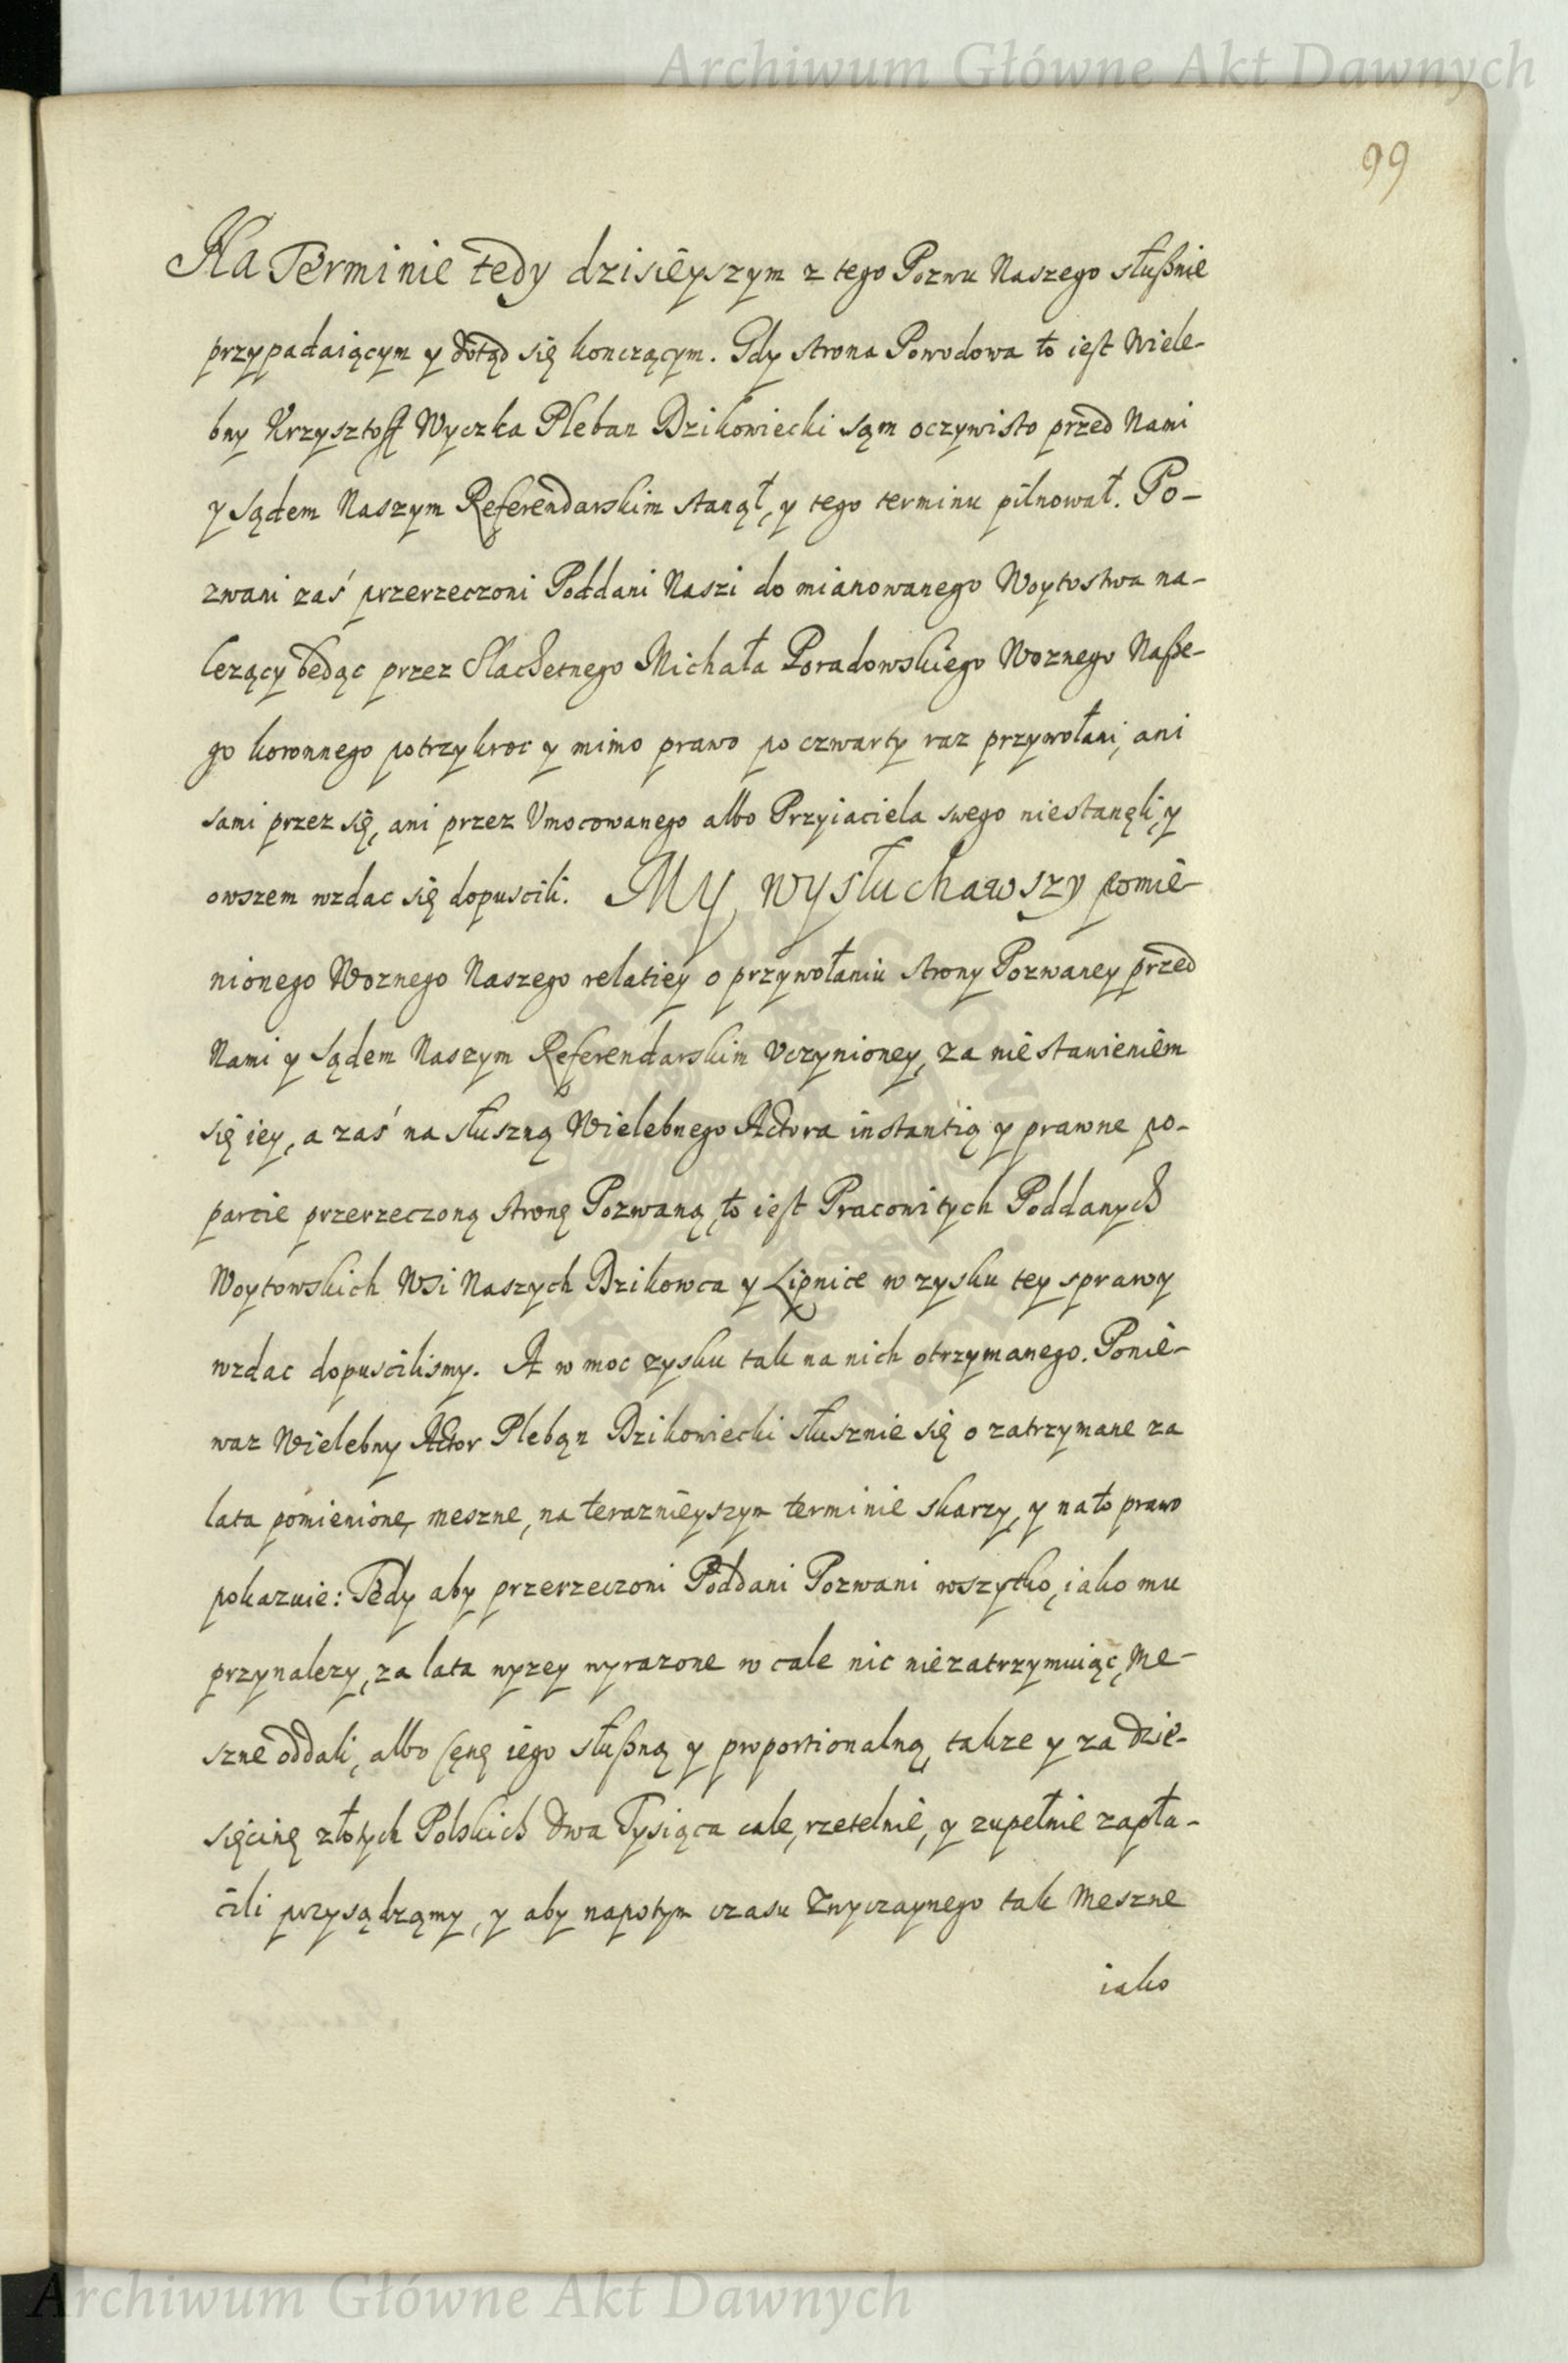 Archiwum Główne Akt Dawnych
99
Na Terminie tedy dzisieyszym z tego Pozwu Naszego słußnie
przypadaiącym y dotąd się konczącym. Gdy strona Powodowa to iest Wiele-
bny Krzysztoff Wyczka Pleban Dzikowiecki sąm oczywisto przed Nami
y Sądem Naszym Referendarskim stanął, y tego terminu pilnował. Po-
zwani zaś przerzeczoni Poddani Naszi do mianowanego Woytostwa na-
lezący będąc przez Slachetnego Michała Poradowskiego Woznego Naße-
go koronnego potrzykroc y mimo prawo po czwarty raz przywołani, ani
sami przez się, ani przez Umocowanego albo Przyiaciela swego niestanęli, y
owszem wzdac się dopuscili. My, wysłuchawszy pomie-
nionego Woznego Naszego relatiey o przywołaniu strony Pozwaney przed
Nami y Sądem Naszym Referendarskim Uczynioney, za niestawieniem
się iey, a zaś na słuszną Wielebnego Actora instantią y prawne po-
parcie przerzeczoną stronę Pozwaną, to iest Pracowitych Poddanych
Woytowskich Wsi Naszych Dzikowca y Lipnice w zysku tey sprawy
wzdac dopuscilismy. A w moc zysku tak na nich otrzymanego. Ponie-
waz Wielebny Actor Pleban Dzikowiecki słusznie się o zatrzymane za
lata pomienione, meszne, na teraznieyszym terminie skarzy, y na to prawo
pokazuie: Tedy aby przerzeczoni Poddani Pozwani wszytko, iako mu
przynalezy, za lata wyzey wyrazone w cale nic niezatrzymuiąc, Me-
szne oddali, albo cenę iego słußną y proportionalną, takze y za dzie-
sięcinę złotych Polskich dwa Tysiąca cale, rzetelnie, y zupełnie zapła-
cili przysądzamy, y aby napotym czasu Zwyczaynego tak Meszne
iako
Archiwum Główne Akt Dawnych